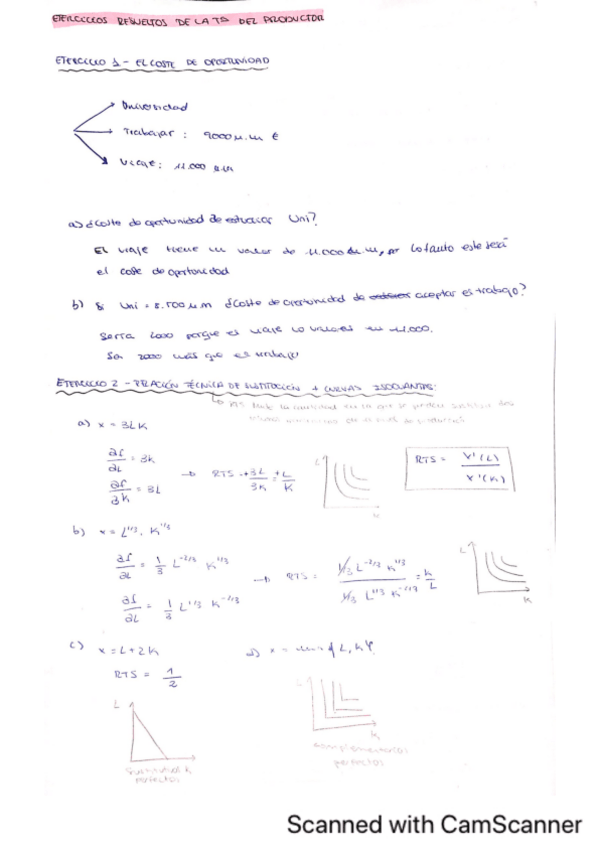 EJERCICIOS RESUELTOS DE LA Tª DEL PRODUCTOR
EJERCICIO 1 - EL COSTE DE OPORTUNIDAD
Universidad
Trabajar : 9000 u.m €
Viaje : 11.000 u.m
a) ¿Coste de oportunidad de estudiar Uni?
El viaje tiene un valor de 11.000 u.m, por lo tanto este será
el coste de oportunidad
b) Si Uni = 8.500 u.m ¿Coste de oportunidad de aceptar el trabajo?
Sería 2000 porque el viaje lo valoras en 11.000.
Son 2000 más que el trabajo
EJERCICIO 2 - RELACIÓN TÉCNICA DE SUSTITUCIÓN + CURVAS ISOCUANTAS:
la cantidad en la que se pueden sustituir dos
a) x = 3LK
∂f/∂L = 3K
∂f/∂K = 3L
→ RTS = +3L/3K = +L/K
L
K
RTS = X'(L)/X'(K)
b) x = L^1/3 · K^1/3
∂f/∂L = 1/3 L^-2/3 K^1/3
∂f/∂L = 1/3 L^1/3 K^-2/3
→ RTS = 1/3 L^-2/3 K^1/3 / 1/3 L^1/3 K^-2/3 = K/L
L
K
c) x = L + 2K
RTS = 1/2
L
Sustitutivos
perfectos
d) x = min {L, K}
L
K
complementarios
perfectos
Scanned with CamScanner